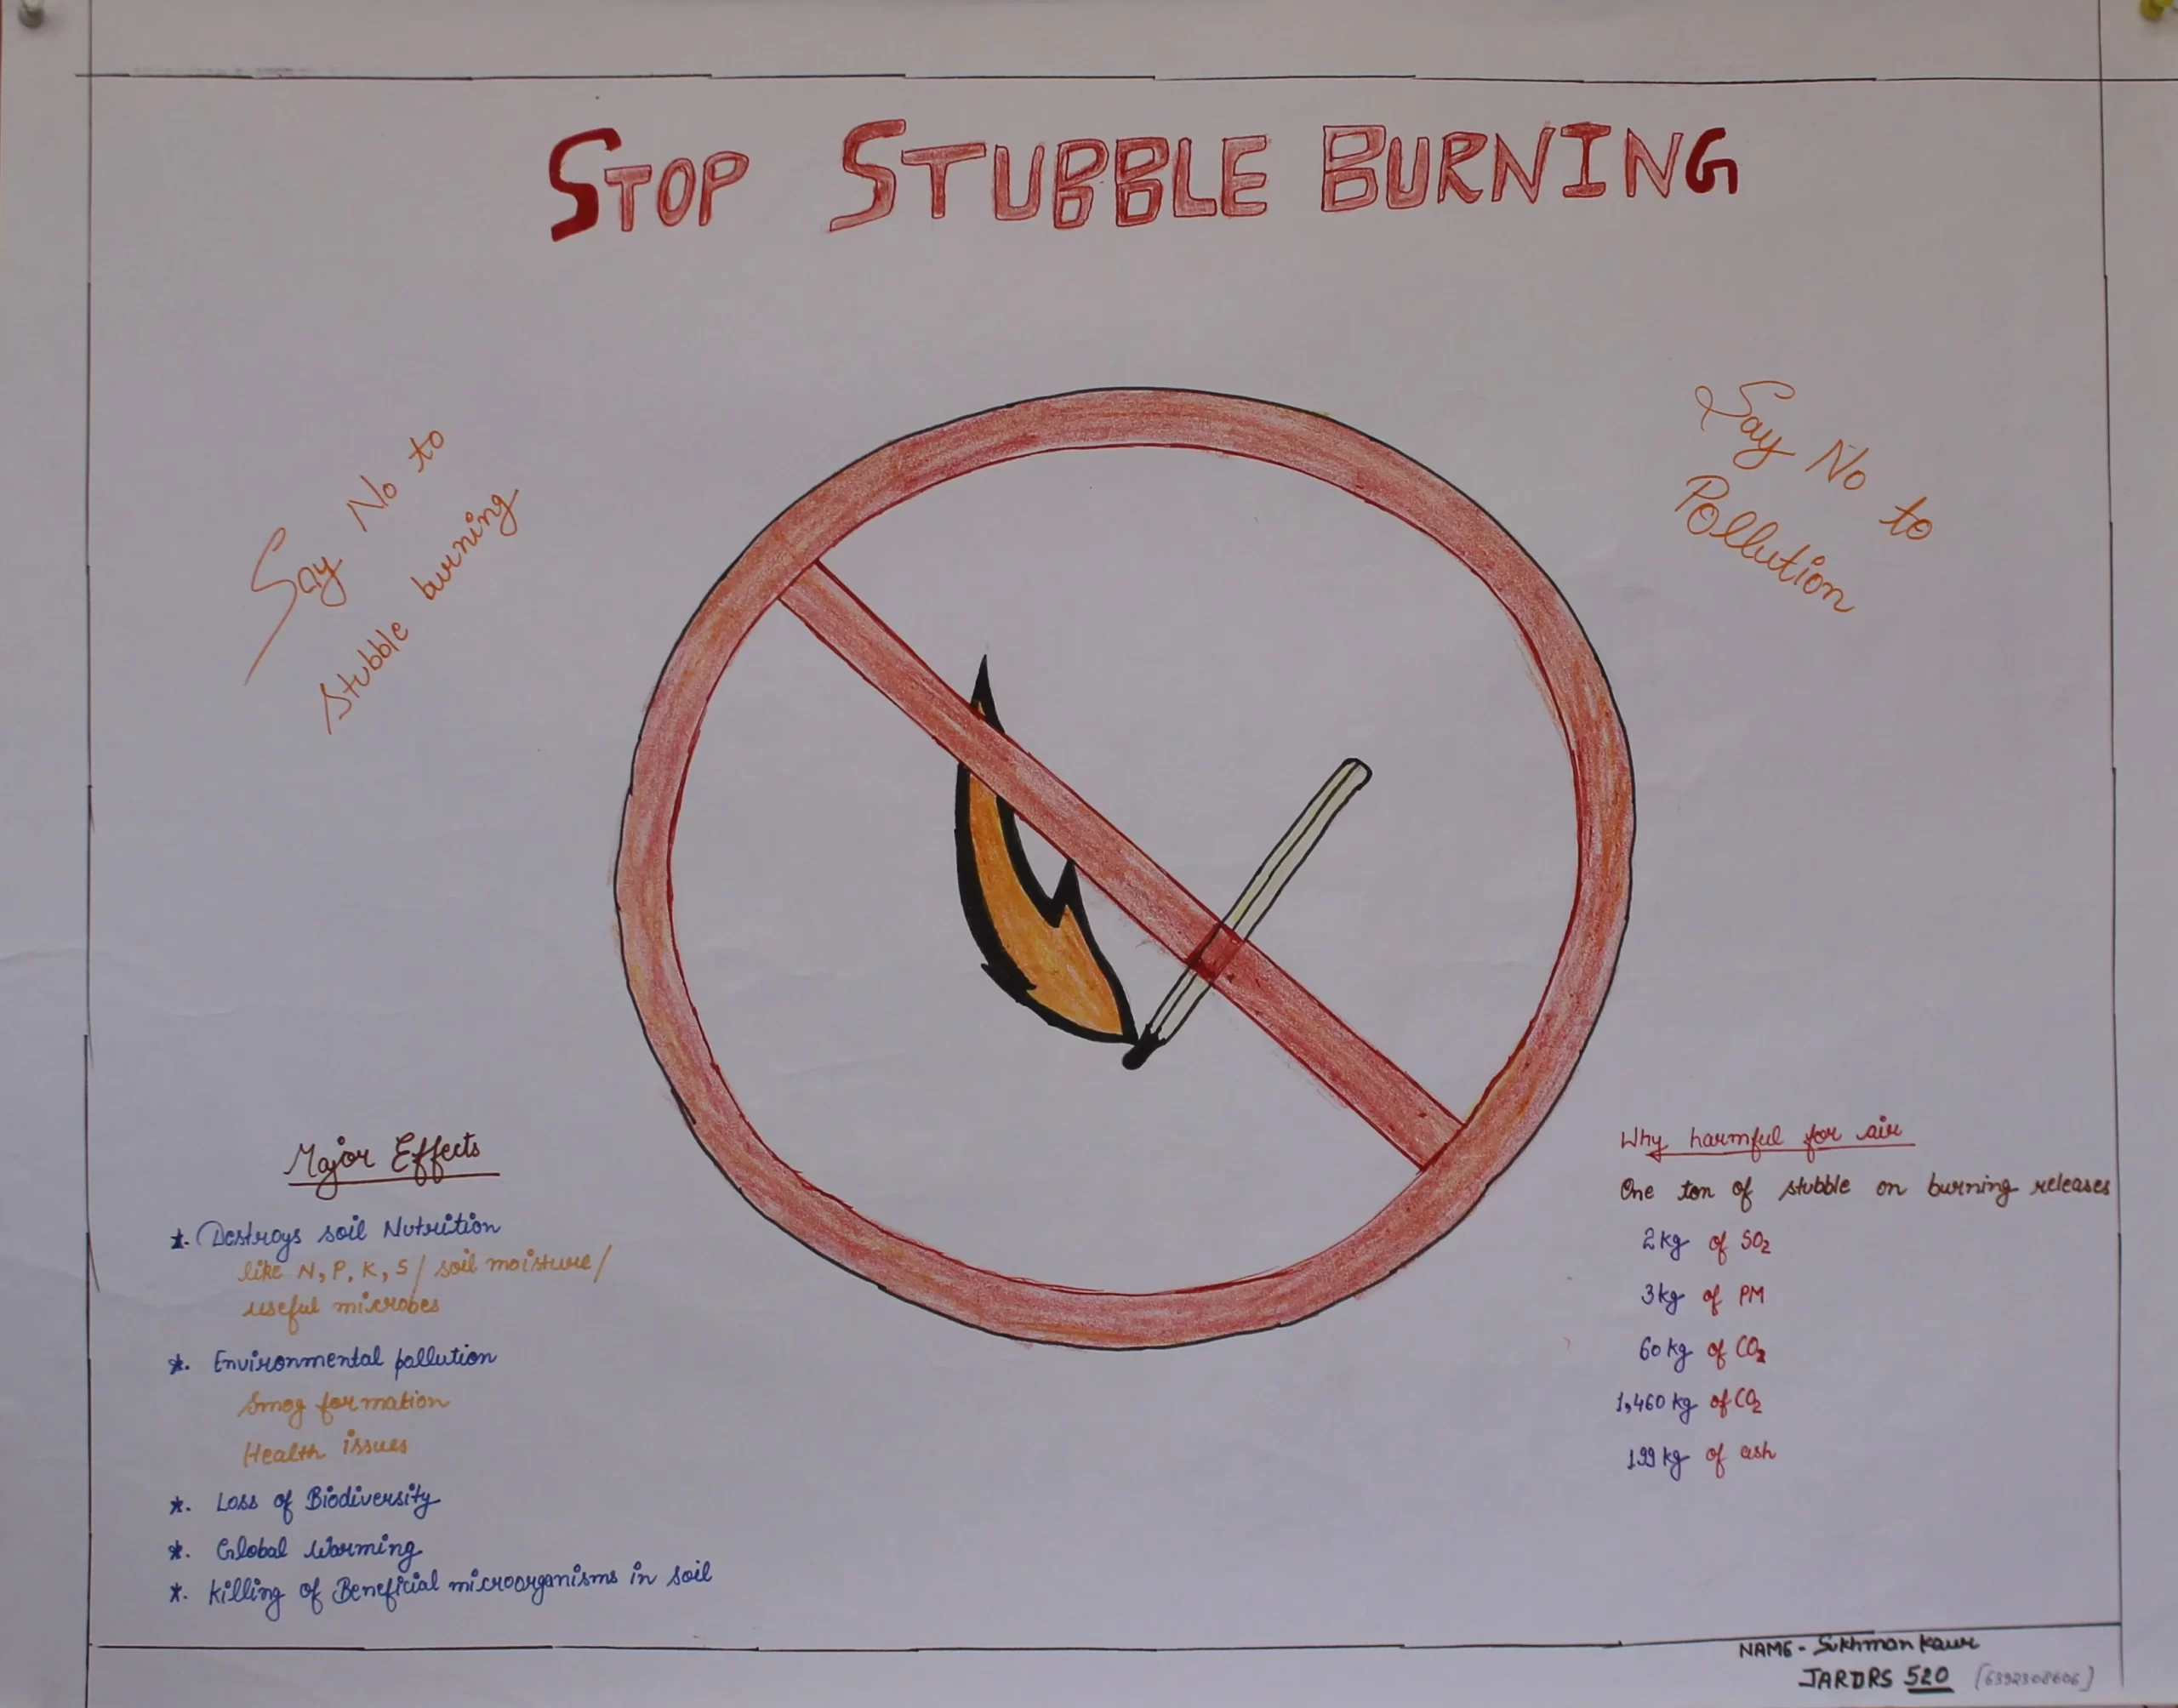 STOP STUBBLE BURNING
Say No to
stubble burning
Say No to
Pollution
Major Effects
*. Destroys soil Nutrition
like N, P, K, S / soil moisture /
useful microbes
*. Environmental pollution
Smog formation
Health issues
*. Loss of Biodiversity
*. Global Warming
*. Killing of Beneficial microorganisms in soil
Why harmful for air
One ton of stubble on burning releases
2 kg of SO₂
3 kg of PM
60 kg of CO₂
1,460 kg of CO₂
199 kg of ash
NAME - Sukhman Kaur
JARDRS 520 [6392308606]